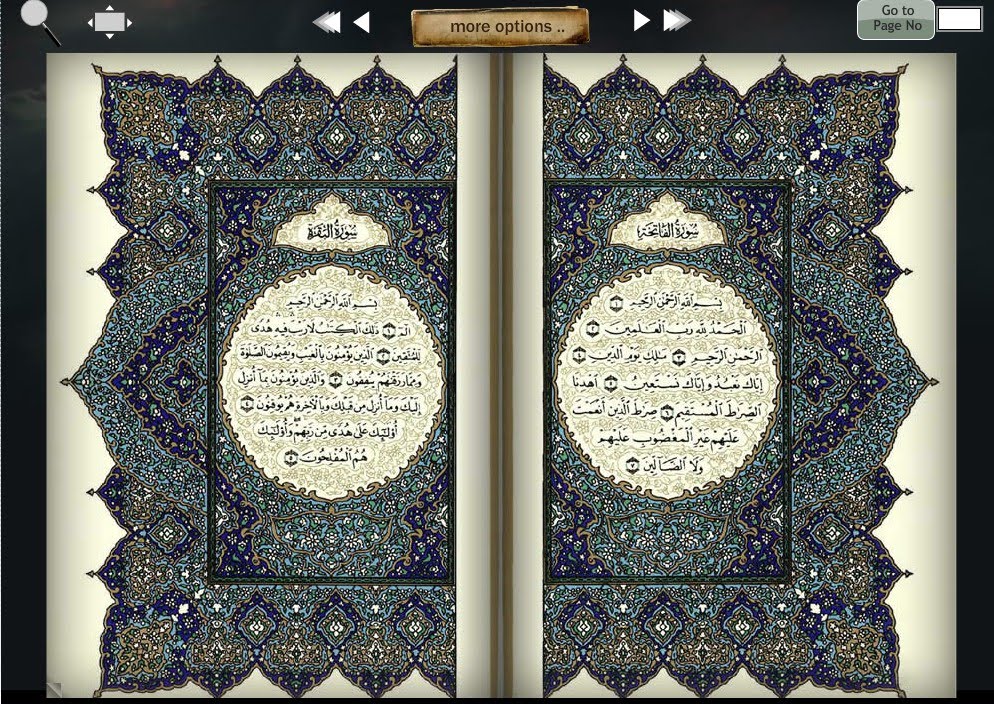 more options ..
Go to
Page No
سورة الفاتحة
بسم الله الرحمن الرحيم ١
الحمد لله رب العلمين ٢
الرحمن الرحيم ٣ ملك يوم الدين ٤
إياك نعبد وإياك نستعين ٥ اهدنا
الصراط المستقيم ٦ صراط الذين أنعمت
عليهم غير المغضوب عليهم
ولا الضالين ٧
سورة البقرة
بسم الله الرحمن الرحيم
الم ١ ذلك الكتب لا ريب فيه هدى
للمتقين ٢ الذين يؤمنون بالغيب ويقيمون الصلوة
ومما رزقنهم ينفقون ٣ والذين يؤمنون بما أنزل
إليك وما أنزل من قبلك وبالآخرة هم يوقنون ٤
أولئك على هدى من ربهم وأولئك
هم المفلحون ٥